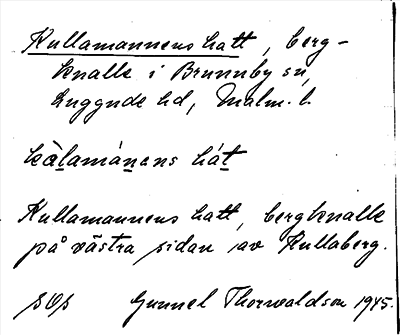 Kullamannens hatt, berg-
knalle i Brunnby sn,
Luggude hd, Malm. l.
kàlamánens hát
Kullamannens hatt, bergknalle
på västra sidan av Kullaberg.
Gunnel Thorwaldson 1945.